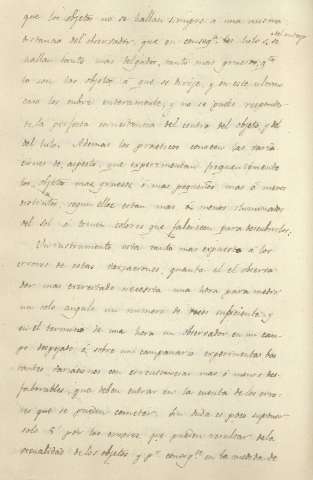 que los objetos no se hallan siempre á una misma
distancia del observador, que en conseqª. los hilos se
hallan tanto mas delgados, tanto mas gruesos, qto.
lo son los objetos á que se dirije, y en este ultimo
caso los cubre enteramente, y no se puede responder
de la perfecta coincidencia del centro del objeto, y del
del hilo. Ademas los practicos conocen las varia
ciones de aspecto, que experimentan frequentemente
los objetos mas gruesos ó mas pequeños mas ó menos
distantes, segun ellos estan mas ó menos iluminados
del sol ó tienen colores que favorecen para descubrirlos;
Un instrumento está tanto mas expuesto á los
errores de estas variaciones, quanto el el observa
dor mas exercitado necesita una hora para medir
un solo angulo un numero de veces suficiente, y
en el termino de una hora un observador en un cam
po despejado, ó sobre un campanario experimenta bas
tantes variaciones con circunstancias mas ó menos des
faborables, que deben entrar en la cuenta de los erro
res que se pueden cometer. Sin duda es poco suponer
solo 5" por los errores, que pueden resultar de la
visualidad de los objetos, y pr. conseqª. en la medida de